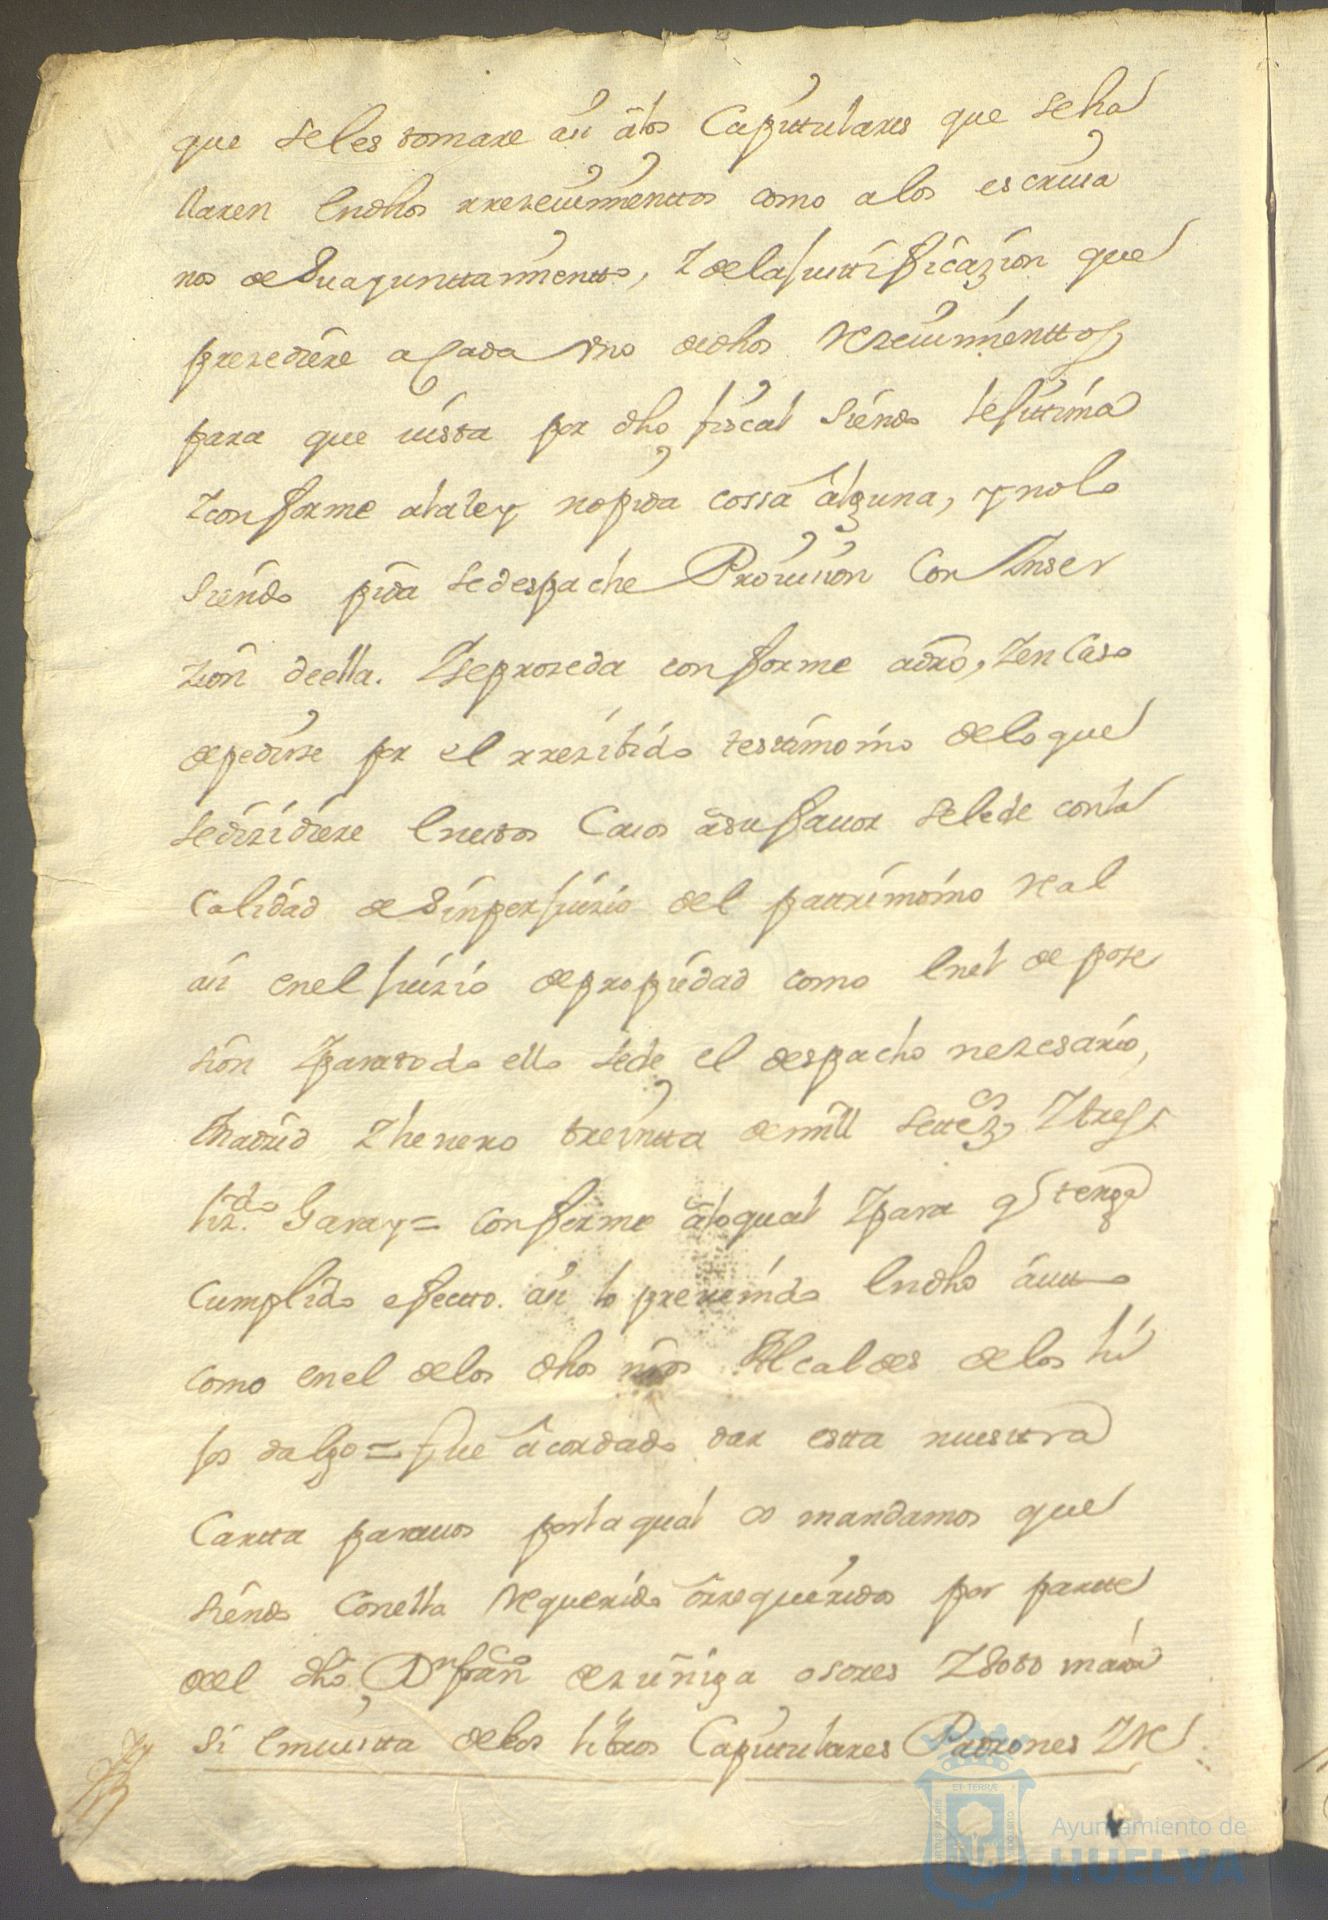 que seles tomare asi a los Capitulares que seha
llaren en dhos rrezeuimienttos como a los escriua
nos de su ayunttamientto, Y de la justtificazion que
prezediere a cada vno de dhos Rezeuimienttos
para que uista por dho fiscal siendo lejittima
Y conforme a la ley no pida cossa alguna, y no lo
siendo pida se despache Prouision Con Inser
zion de ella. Y se prozeda conforme a dro, Y en Caso
de pedirse por el rrezibido testtimonio de lo que
se dizidiere en estos Casos a su fauor se le de con la
Calidad de sin perjuizio del pattrimonio Real
asi en el juizio de propiedad como en el de pose
sion Y para todo ello se de el despacho nezesario,
Madrid Y henero treintta de mill settez.os Y tres
liz.do Garay = Conforme a lo qual Y para q tenga
Cumplido efectto. asi lo preuenido en dho autto
como en el de los dhos nros Alcaldes de los hi
jos dalgo = fue acordado dar estta nuesttra
Cartta para uos por la qual os mandamos que
siendo Con ella Requerido o rrequeridos por partte
del dho Dn fran.co de zuñiga osores Y soto mayor
Si en uistta de los libros Capittulares Padrones Y Re
ET TERRÆ
Ayuntamiento de
HUELVA